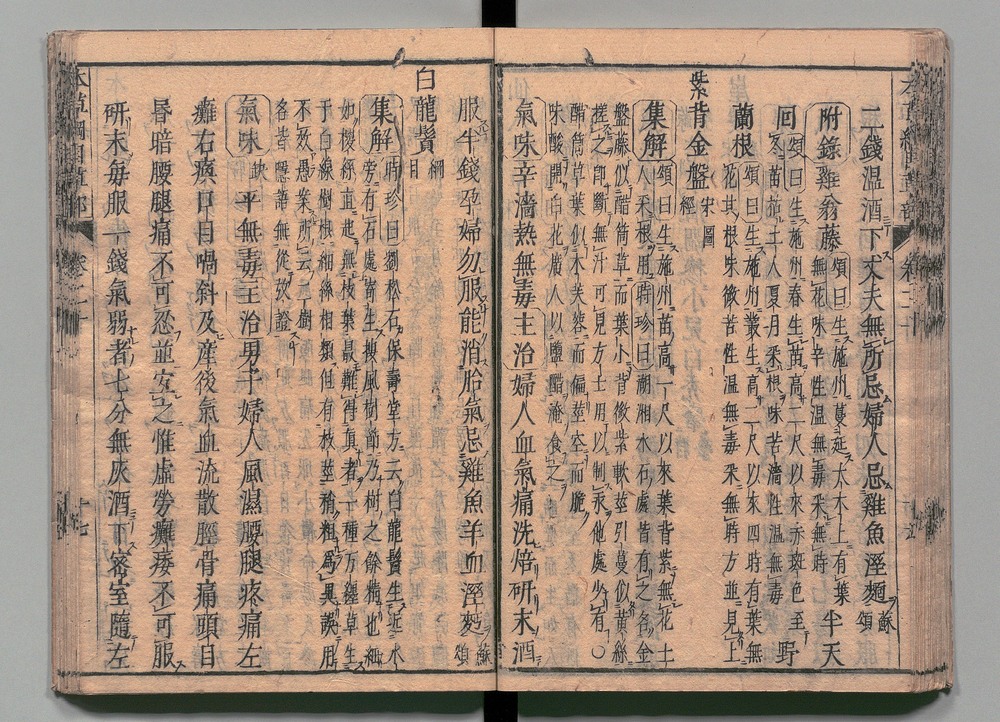 二錢温酒下丈夫無所忌婦人忌雞魚溼麪蘇頌
附錄雞翁藤頌曰生施州蔓延大木上有葉
無花味辛性温無毒采無時
半天
回頌曰生施州春生苗高二尺以來赤斑色至
冬苗枯土人夏月采根味苦濇性温無毒
野
蘭根頌曰生施州叢生高二尺以來四時有葉無
花其根味微苦性温無毒采無時方並見上
紫背金盤宋圖經
集解頌曰生施州苗高一尺以來葉背紫無花土
人采根用時珍曰湖湘水石處皆有之名金
盤藤似醋筒草而葉小背微紫軟莖引蔓似黃絲
搓之即斷無汁可見方士用以制汞他處少有○
醋筒草葉似木芙蓉而偏莖空而脆
味酸開白花廣人以鹽醋淹食之
氣味辛濇熱無毒主治婦人血氣痛洗焙研末酒
服半錢孕婦勿服能消胎氣忌雞魚羊血溼麪蘇頌
白龍鬚綱目
集解時珍曰劉松石保壽堂方云白龍鬚生近水
旁有石處寄生搜風樹節乃樹之餘精也細
如椶絲直起無枝葉最難得真者一種万纏草生
于白線樹根細絲相類但有枝莖稍粗爲異誤用
不效愚案所云二樹
名皆隱語無從攷證
氣味缺平無毒主治男子婦人風濕腰腿疼痛左
癱右瘓口目喎斜及産後氣血流散脛骨痛頭目
昏暗腰腿痛不可忍並宜之惟虛勞癱痿不可服
研末每服一錢氣弱者七分無灰酒下密室隨左